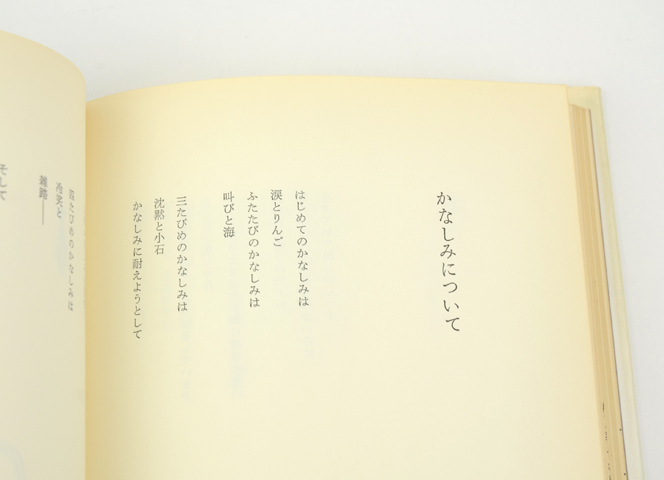 かなしみについて
はじめてのかなしみは
涙とりんご
ふたたびのかなしみは
叫びと海
三たびめのかなしみは
沈黙と小石
かなしみに耐えようとして
四たびめのかなしみは
冷笑と
雑踏――
そして